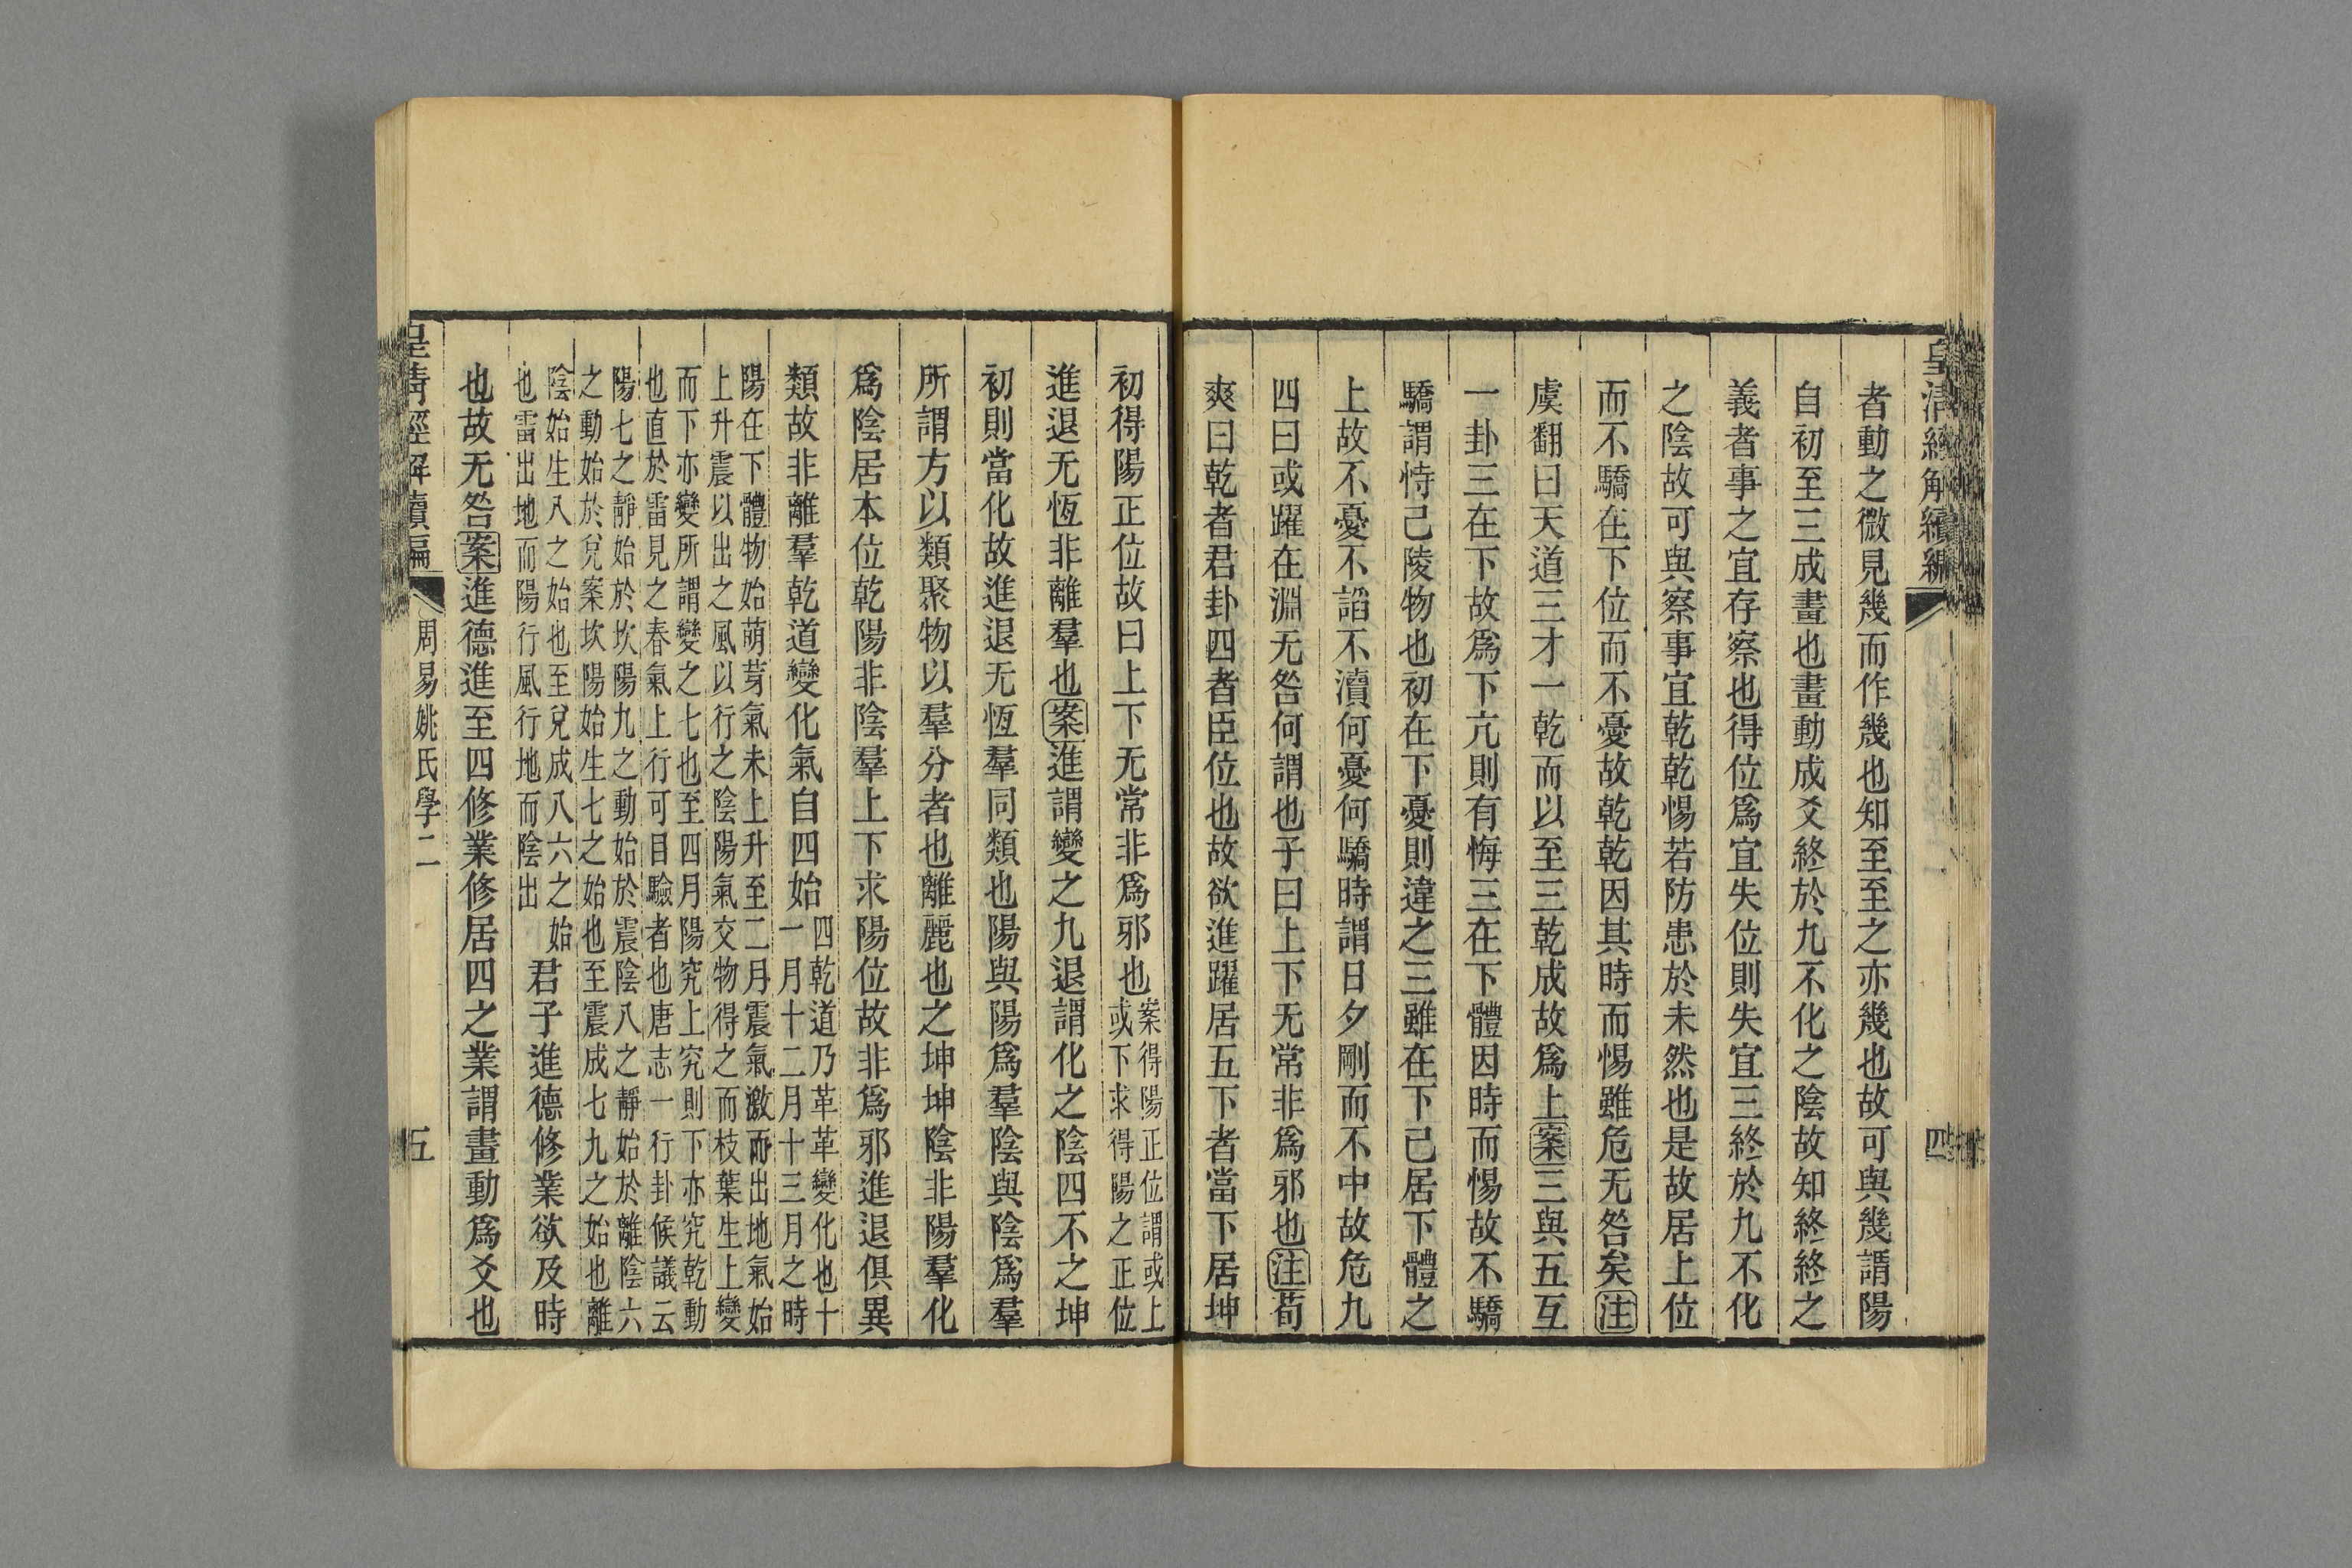 皇清經解續編
四
者動之微見幾而作幾也知至至之亦幾也故可與幾謂陽
自初至三成畫也畫動成爻終於九不化之陰故知終終之
義者事之宜存察也得位爲宜失位則失宜三終於九不化
之陰故可與察事宜乾乾惕若防患於未然也是故居上位
而不驕在下位而不憂故乾乾因其時而惕雖危无咎矣注
虞翻曰天道三才一乾而以至三乾成故爲上案三與五互
一卦三在下故爲下亢則有悔三在下體因時而惕故不驕
驕謂恃己陵物也初在下憂則違之三雖在下已居下體之
上故不憂不諂不瀆何憂何驕時謂日夕剛而不中故危九
四曰或躍在淵无咎何謂也子曰上下无常非爲邪也注荀
爽曰乾者君卦四者臣位也故欲進躍居五下者當下居坤
初得陽正位故曰上下无常非爲邪也案得陽正位謂或上
或下求得陽之正位
進退无恆非離羣也案進謂變之九退謂化之陰四不之坤
初則當化故進退无恆羣同類也陽與陽爲羣陰與陰爲羣
所謂方以類聚物以羣分者也離麗也之坤坤陰非陽羣化
爲陰居本位乾陽非陰羣上下求陽位故非爲邪進退俱異
類故非離羣乾道變化氣自四始四乾道乃革革變化也十
一月十二月十三月之時
陽在下體物始萌芽氣未上升至二月震氣激而出地氣始
上升震以出之風以行之陰陽氣交物得之而枝葉生上變
而下亦變所謂變之七也至四月陽究上究則下亦究乾動
也直於雷見之春氣上行可目驗者也唐志一行卦候議云
陽七之靜始於坎陽九之動始於震陰八之靜始於離陰六
之動始於兌案坎陽始生七之始也至震成七九之始也離
陰始生八之始也至兌成八六之始
也雷出地而陽行風行地而陰出
君子進德修業欲及時
也故无咎案進德進至四修業修居四之業謂畫動爲爻也
皇清經解續編
周易姚氏學二
五